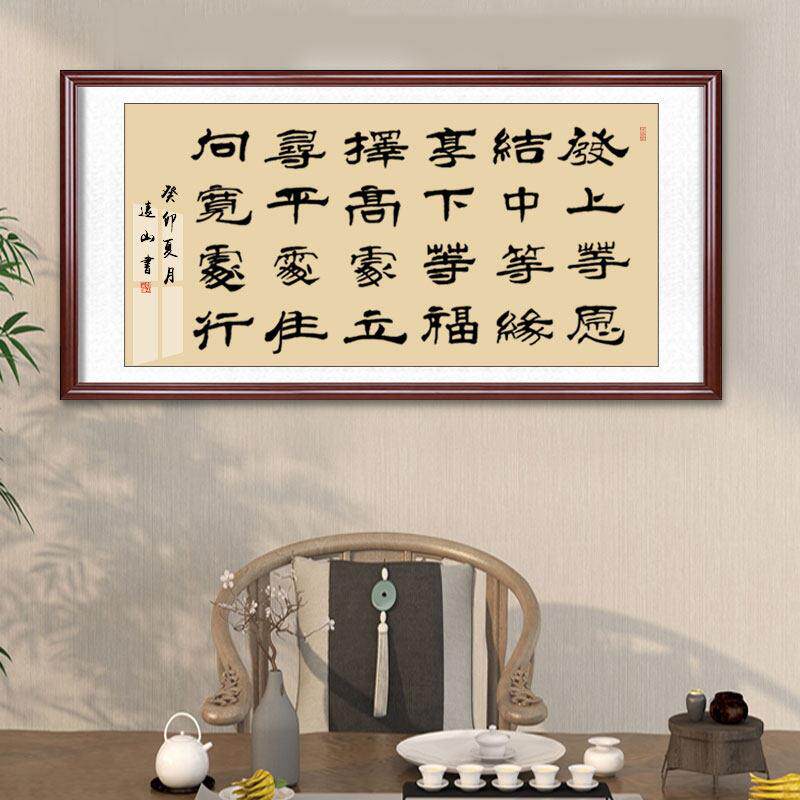 發上等愿
結中等緣
享下等福
擇高處立
尋平處住
向寬處行
癸卯夏月
遠山書